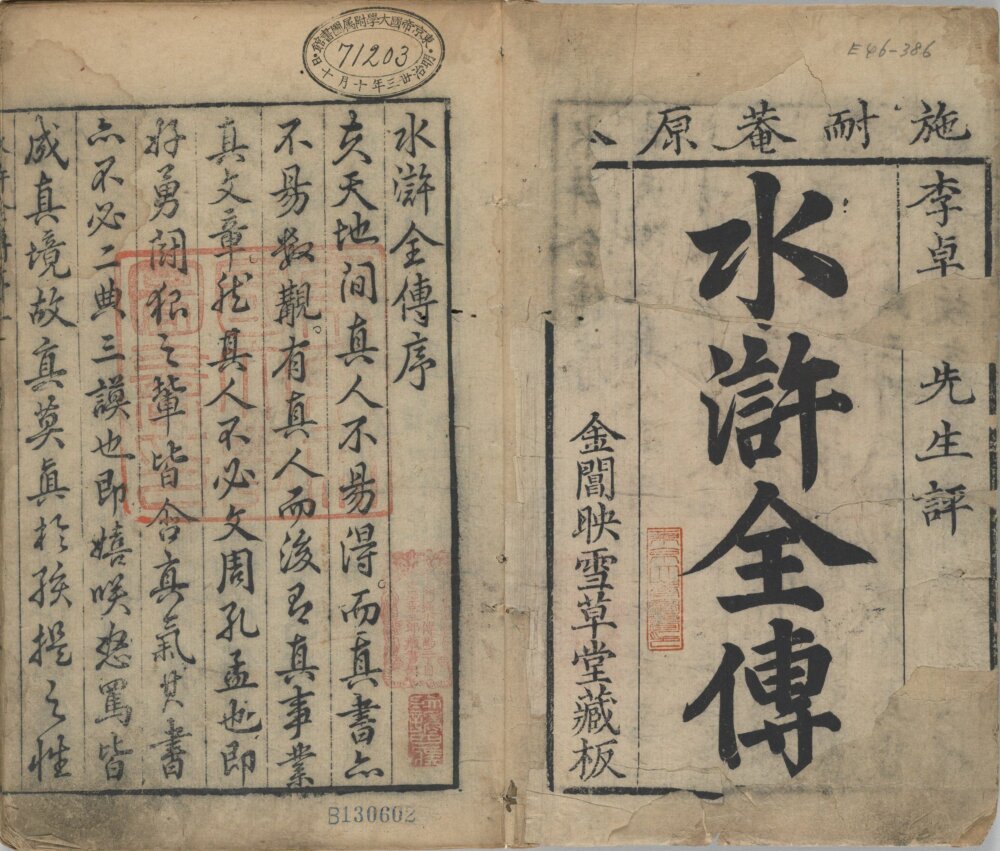 施耐菴原
李卓 先生評
水滸全傳
金閶映雪草堂藏板
E46-386
東京帝國大學附属圖書館
71203
明治卅三年十月十日
水滸全傳序
夫天地間真人不易得而真書亦
不易數覯。有真人而後有真事業
真文章然其人不必文周孔孟也即
好勇鬪狠之輩皆含真氣其書
亦不必二典三謨也即嬉咲怒罵皆
成真境故真莫眞於孩提之性
B130602